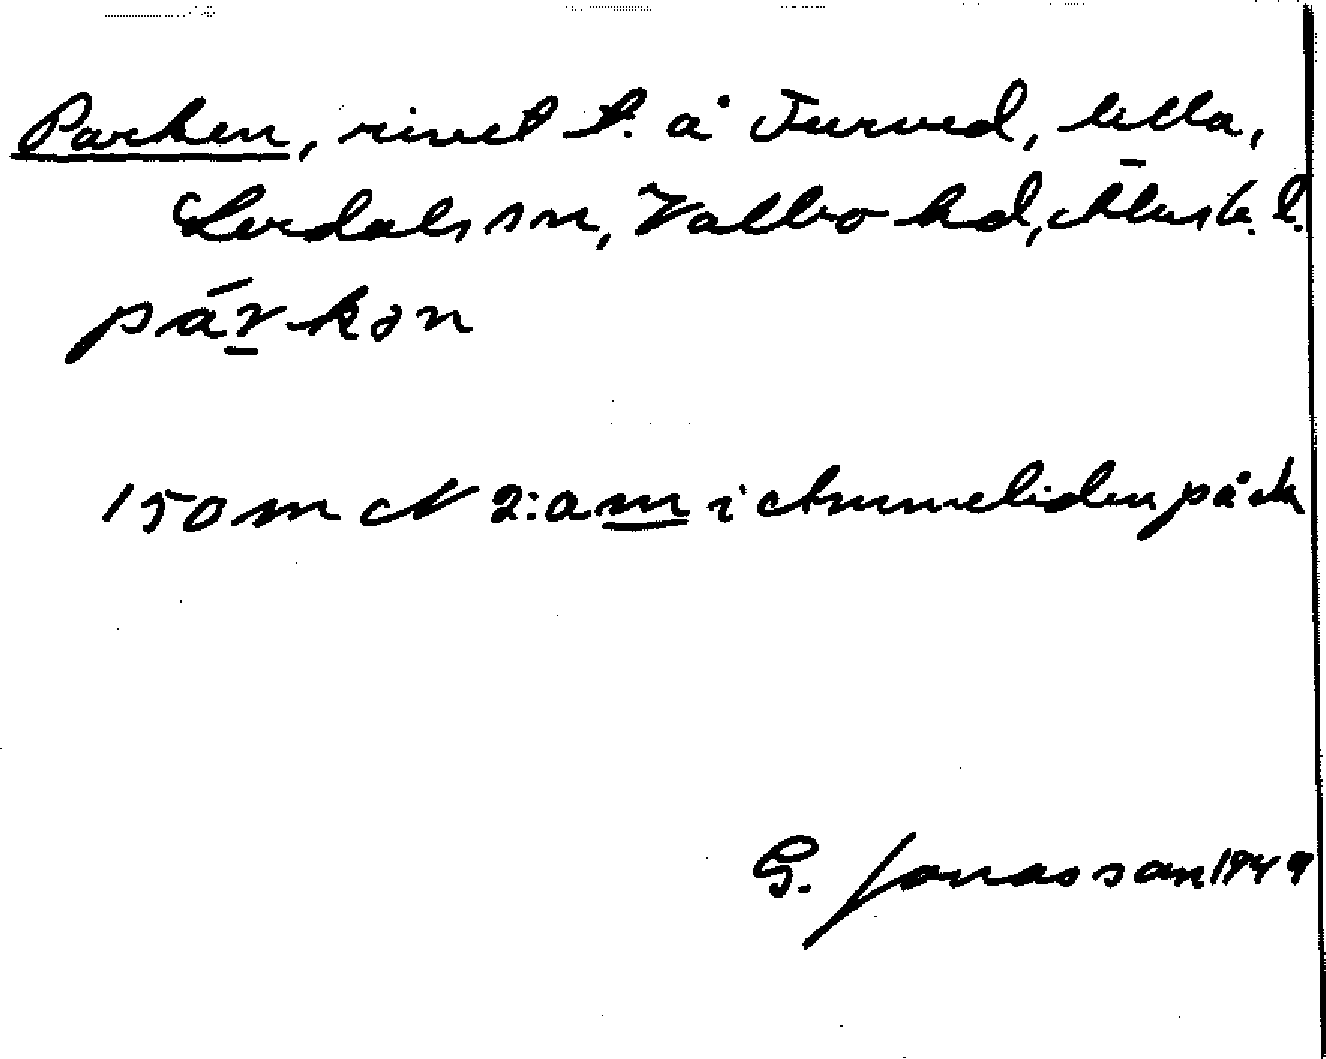 Parken, rivet t. å Turved, lilla,
Lerdals sn, Valbo hd, Älvsb. l.
páṟkən
150 m N 2:a m i Ammeliden på ek
G. Jonasson 1949